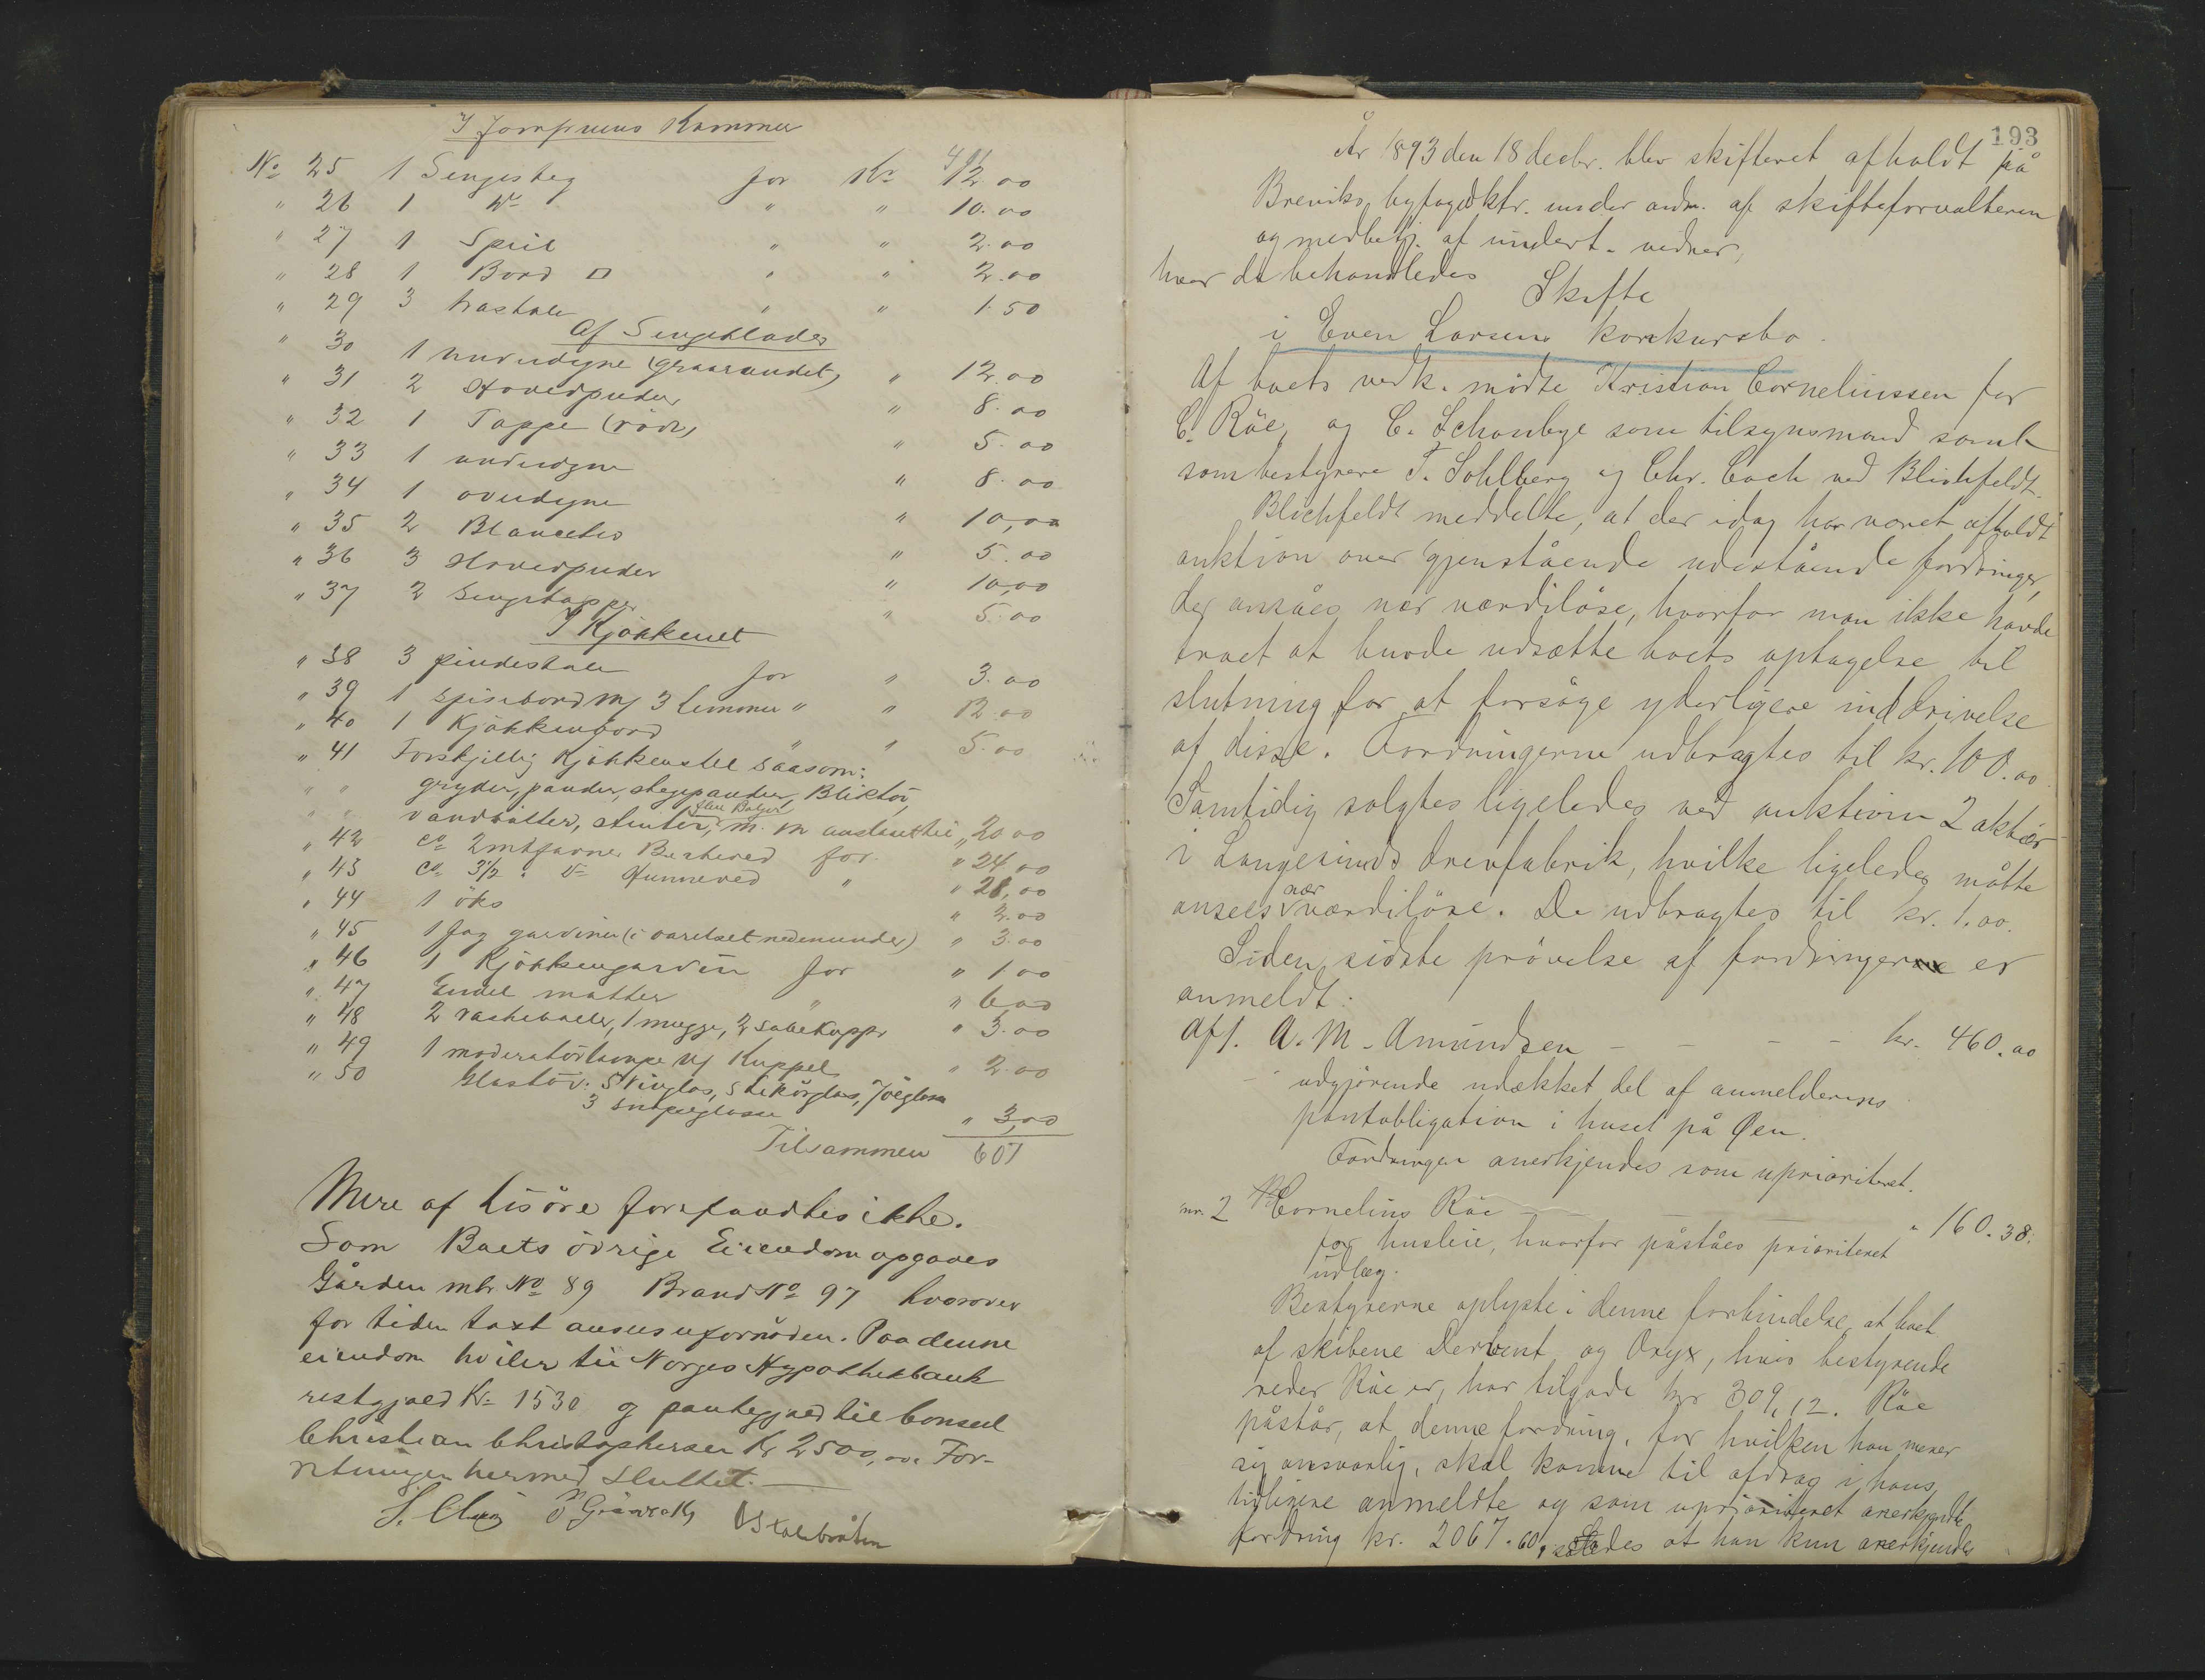 I Jomfruens Kammer
411
No 25 1 Sengesteg for Kr 12.00
" 26 1 do " " 10.00
" 27 1 Speil " " 2.00
" 28 1 Bord " " 2.00
" 29 3 trastole " " 1.50
Af Sengeklæder
" 30 1 underdyne (graarandet) " 12.00
" 31 2 Hovedpuder " 8.00
" 32 1 Tæppe (rödt) " 5.00
" 33 1 underdyne " 8.00
" 34 1 overdyne " 10,00
" 35 2 Blancetes " 5.00
" 36 3 Hovedpuder " 10,00
" 37 2 Sengetæpper " 5.00
I Kjökkenet
" 38 3 pindestole for " 3.00
" 39 1 spisebord m/ 3 lemmer " " 12.00
" 40 1 Kjökkenbord " " 5.00
" 41 Forskjellig Kjökkenstel saasom:
" " gryder, pander, stegepander, Bliktöi,
flere Baljer
" " vandbötter, m. m anslaaet til " 20 00
" 42 ca 2 mtfavne Birkeved for " 24,00
" 43 ca 3 1/2 " do Hunneved " " 28,00
" 44 1 öks " 2.00
" 45 1 fag gardiner (i værelset nedenunder) " 3.00
" 46 1 Kjökkengardin for " 1 00
" 47 Endel matter " " 6 00
" 48 2 vaskeboller, 1 mugge, 2 sæbekopper " 3.00
" 49 1 moderatörlampe m/ Kuppel " 2.00
" 50 Glastöi: 5 Vinglas, 5 Likörglas, 7 ölglasse
3 snapseglasse " 3,00
Tilsammen 601
Mere af lösöre forefandtes ikke.
Som Boets övrige Eiendom opgaves
Gården mtr No 89 Brand No 97 hvorover
for tiden taxt ansees ufornöden. Paa denne
eiendom hviler til Norges Hypothekbank
restgjæld Kr 1530 og pantegjæld til Consul
Christian Christophersen Kr 2500,00. For-
retningen hermed sluttet.
193
År 1893 den 18 decbr. blev skifteret afholdt på
Breviks byfogedktr. under adm. af skifteforvalteren
og medbetj. af undert. vidner,
hvor da behandledes Skifte
i Even Larsens konkursbo.
Af boets vedk. mödte Kristian Corneliussen for
C. Röe, og C. Schonbye som tilsynsmænd samt
som bestyrere T. Sohlberg og Chr. Coch ved Blichfeldt.
Blichfeldt meddelte, at der idag har været afholdt
auktion over gjenstående udestående fordringer,
der ansåes nær værdilöse, hvorfor man ikke havde
troet at burde udsætte boets optagelse til
slutning for at forsöge yderligere inddrivelse
af disse. Fordringerne udbragtes til kr. 100.00.
Samtidig solgtes ligeledes ved auktion 2 aktier
i Langesunds trævfabrik, hvilke ligeledes måtte
nær
ansees værdilöse. De udbragtes til kr. 1.00.
Siden sidste prövelse af fordringerne er
anmeldt:
Af 1. A. M. Amundsen - - - - kr. 460.00
udgjörende udækket del af anmelderens
pantobligation i huset på Øen.
Fordringen anerkjendes som uprioriteret.
nr. 2 Cornelius Röe - - - " 160.38.
for husleie, hvorfor påståes prioriteret
udlæg.
Bestyrerne oplyste i denne forbindelse, at boet
af skibene Derwent og Onyx, hvis bestyrende
reder Röe er, har tilgode kr 309,12. Röe
påstår, at denne fordring, for hvilken han mener
sig ansvarlig, skal komme til afdrag i hans
tidligere anmeldte og som uprioriteret anerkjendte
fordring kr. 2067.60, således at han kun anerkjendes